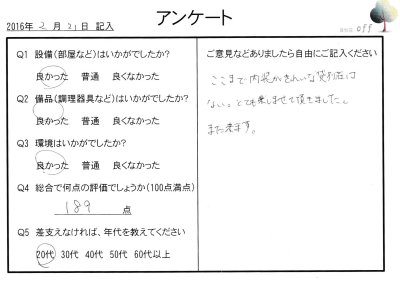 アンケート
2016年 2 月 21 日 記入
099
Q1 設備(部屋など)はいかがでしたか?
良かった 普通 良くなかった
Q2 備品(調理器具など)はいかがでしたか?
良かった 普通 良くなかった
Q3 環境はいかがでしたか?
良かった 普通 良くなかった
Q4 総合で何点の評価でしょうか(100点満点)
189 点
Q5 差支えなければ、年代を教えてください
20代 30代 40代 50代 60代以上
ご意見などありましたら自由にご記入ください
ここまで内装がきれいな貸別荘は
ない。とても楽しませて頂きました。
また来ます。